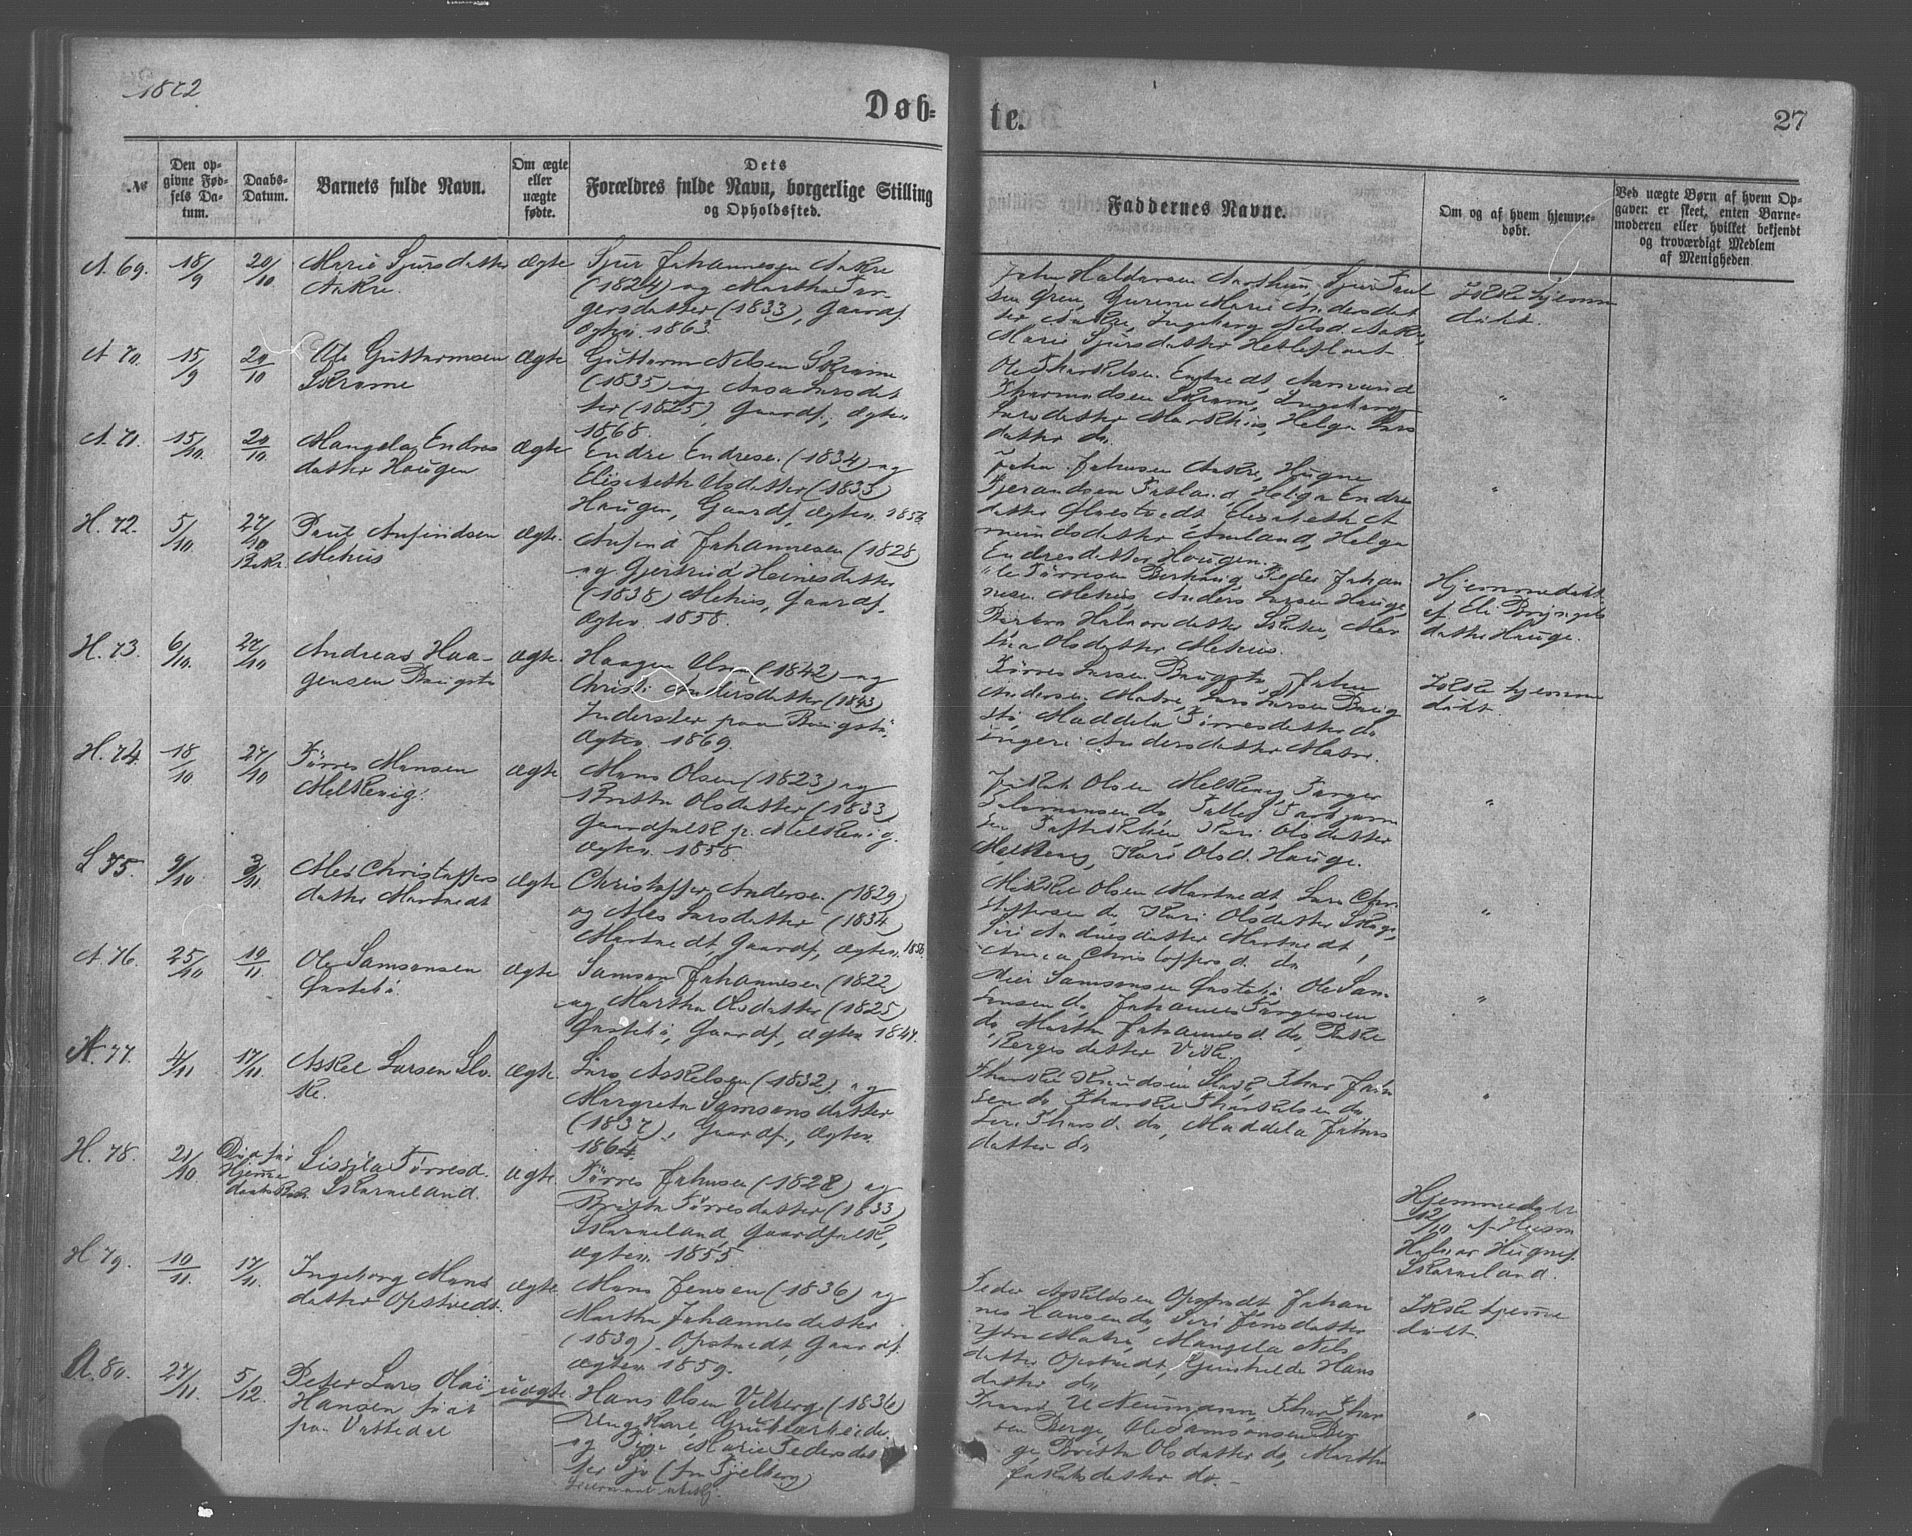 1872
Døb=
te.
27
№
Den op-
givne Fød-
sels Da-
tum.
Daabs-
Datum.
Barnets fulde Navn.
Om ægte
eller
uægte
fødte.
Dets
Forældres fulde Navn, borgerlige Stilling
og Opholdssted.
Faddernes Navne.
Om og af hvem hjemme-
døbt.
Ved uægte Børn af hvem Op-
gaven er skeet, enten Barne-
moderen eller hvilket bekjendt
og troværdigt Medlem
af Menigheden.
A. 69.
18/9
20/10
Marie Sjursdatter
Aakre.
ægte
Sjur Johannesen Aakre
(1824) og Martha Tor-
gersdatter (1833), Gaardf.
Ægtev. 1863.
John Haldorsen Aarthun, Sjur
Gurine Marie Andersdat
ter Aakre, Ingeborg Nelsd. Aakre,
Marie Sjursdatter
Ikke hjemme
døbt.
A 70.
15/9
20/10
Ole Guttormsen
Skrome
ægte
Guttorm Nelsen Skrome
(1835) og Aasa Larsdat
ter (1825), Gaardf. Ægtev.
1868.
Ole Thorkelsen Amund
Thormundsen Skrom, Ingeborg
Larsdatter Markhus, Helga Lars
datter do
"
A 71.
15/10
20/10
Mangela Endres
datter Haugen
ægte
Endre Endresen (1834) og
Elisabeth Olsdatter (1833)
Haugen, Gaardf, Ægtev. 1856
John Johnsen Aakre, Hugne
Tjerandsen Fatland, Helga Endres
datter Elisabeth A
mundsdatter Helga
Endresdatter Haugen.
"
H. 72.
5/10
27/10
Bekr
Paul Anfindsen
Mehus
ægte.
Anfind Johannesen (1828)
og Gjertrud Heinesdatter
(1838) Mehus, Gaardf.
Ægtev. 1858.
Ole Tørresen Peder Johan
nesen Mehus, Anders Larsen Hauge,
Barbro Halvorsdatter Mar
tha Olsdatter Mehus.
Hjemmedøbt
af Eli Brynjels
datter Hauge.
H. 73.
6/10
27/10
Andreas Haa-
gensen Baugstø
ægte.
Haagen Olsen (1842) og
Christi Andersdatter (1843)
Inderster paa Baugstø.
Ægtev. 1869.
Tørres Larsen Baugstø, John
Andersen Matre, Lars Larsen Baug
stø, Maddela Tørresdatter do
Andersdatter Matre.
Ikke hjemme
døbt.
H. 74.
18/10
27/10
Tørres Monsen
Melkevig.
ægte
Mons Olsen (1823) og
Britta Olsdatter (1833)
Gaardfolk p. Melkevig.
Ægtev. 1858.
Jakob Olsen Melkevig, Torger
Salomonsen do, Tollef Torbjørn
sen Kari Olsdatter
Melkevig, Kari Olsd. Hauge.
"
L 75.
9/10
3/11
Ales Christoffers
datter Martvedt
ægte
Christoffer Andersen (1829)
og Ales Larsdatter (1834)
Martvedt, Gaardf, Ægtev. 1856
Mikkel Olsen Martvedt, Lars Chri
stoffersen do, Kari Olsdatter
Siri Andersdatter Martvedt,
Anna Christoffersd. do
"
A. 76.
25/10
10/11
Ole Samsonsen
Østebø.
ægte
Samson Johannesen (1822)
og Martha Olsdatter (1825)
Østebø, Gaardf, Ægtev. 1847.
Samsonsen Østebø, Ole Sam
sonsen do, Johannes Torgersen
do, Martha Johannesd. do,
"
A. 77.
4/11
17/11.
Askel Larsen Slo-
ke.
ægte
Lars Askelsen (1832) og
Margreta Samsonsdatter
(1837), Gaardf., Ægtev.
1864.
Thorkel Knudsen Thor John
sen do, Thorkel Thorkelsen do
Thorsd. do, Maddela Johns
datter do
"
H. 78.
21/10
Død før
Hjemme
daabs Bekr.
Lissila Tørresd.
Skarveland.
ægte
Tørres Johnsen (1828) og
Britta Tørresdatter (1833)
Skarveland, Gaardfolk,
Ægtev. 1855
Hjemmedøbt
/10 af Husm
Halvor Hugnes.
Skarveland.
H 79.
10/11.
17/11.
Ingeborg Mons
datter Opstvedt.
ægte.
Mons Jensen (1836) og
Martha Johannesdatter
(1839) Opstvedt, Gaardf.
Ægtev. 1859.
Peder Askildsen Opstvedt, Johan
nes Hansen do, Siri Jensdatter
Ytre Matre, Mangela Nels
datter Opstvedt, Gunhilde Hans
datter do
Ikke hjemme
døbt.
A. 80.
27/11.
5/12.
Peter Lars Olai
Hansen født
paa Vattedal
uægte
Hans Olsen Vikberg (1836)
Ungkarl, Grubearbeider
og Pige Marie Pedersdat
ter (fra Fjelberg)
Thor Thor
sen Berge, Ole Samsonsen Ber
ge, Britta Olsdatter do, Martha
Jakobsdatter do.
"